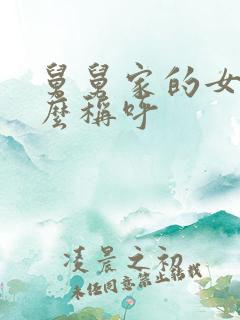 舅舅家的女
么稱呼
凌晨之初
未经同意禁止转载